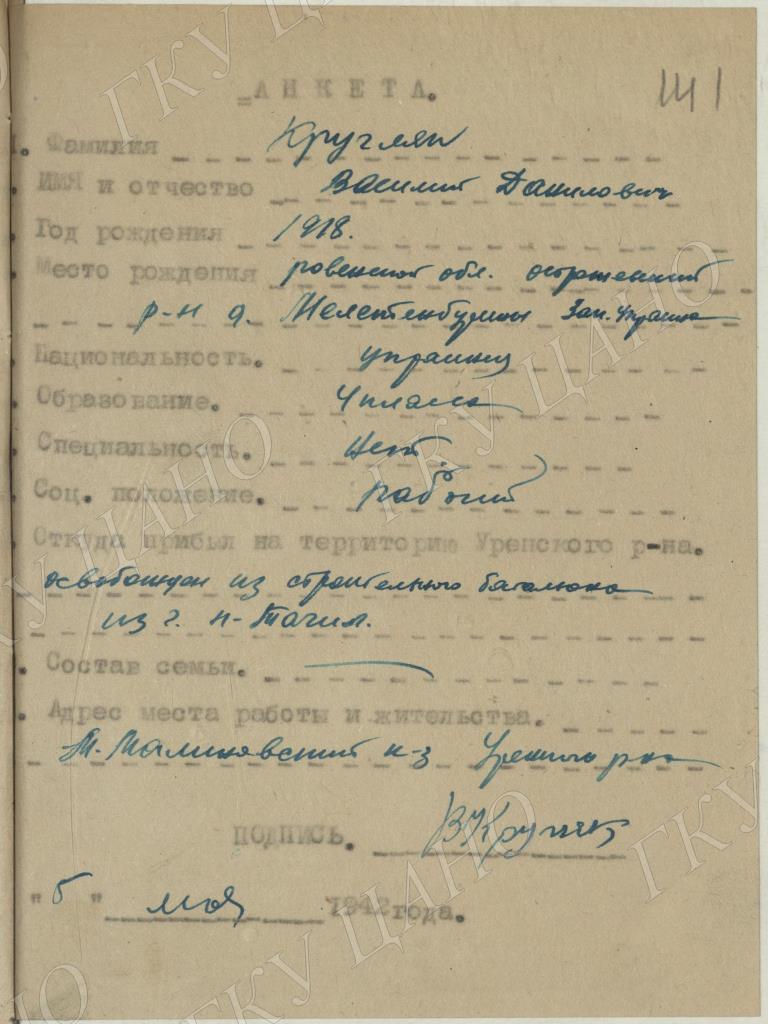 АНКЕТА.
Фамилия Кругляк
Имя и отчество Василий Данилович
Год рождения 1918.
Место рождения ровенской обл. острожский
р-н д. Зап. Украина
Национальность. украинец
Образование. 4 класса
Специальность. нет
Соц. положение. рабочий
Откуда прибыл на территорию Уренского р-на.
освобожден из строительного баталиона
из г. Н-Тагил.
Состав семьи. —
Адрес места работы и жительства.
Т. Малиновский к-з Уренского р-на
ПОДПИСЬ. ВКругляк
"5" мая 1942 года.
ГКУ ЦАНО